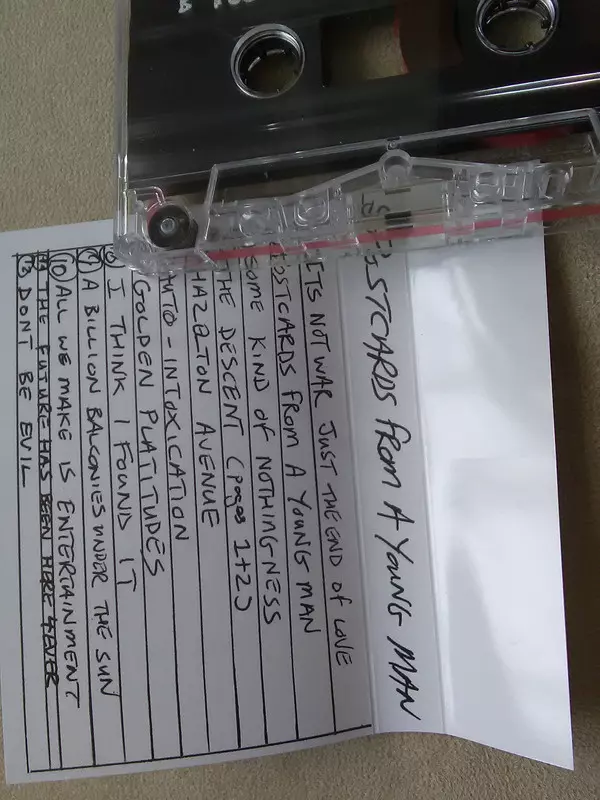 POSTCARDS FROM A YOUNG MAN
ITS NOT WAR JUST THE END OF LOVE
POSTCARDS FROM A YOUNG MAN
SOME KIND OF NOTHINGNESS
THE DESCENT (pages 1+2)
HAZELTON AVENUE
AUTO-INTOXICATION
GOLDEN PLATITUDES
I THINK I FOUND IT
A BILLION BALCONIES UNDER THE SUN
10 ALL WE MAKE IS ENTERTAINMENT
THE FUTURE HAS BEEN HERE 4EVER
DONT BE EVIL